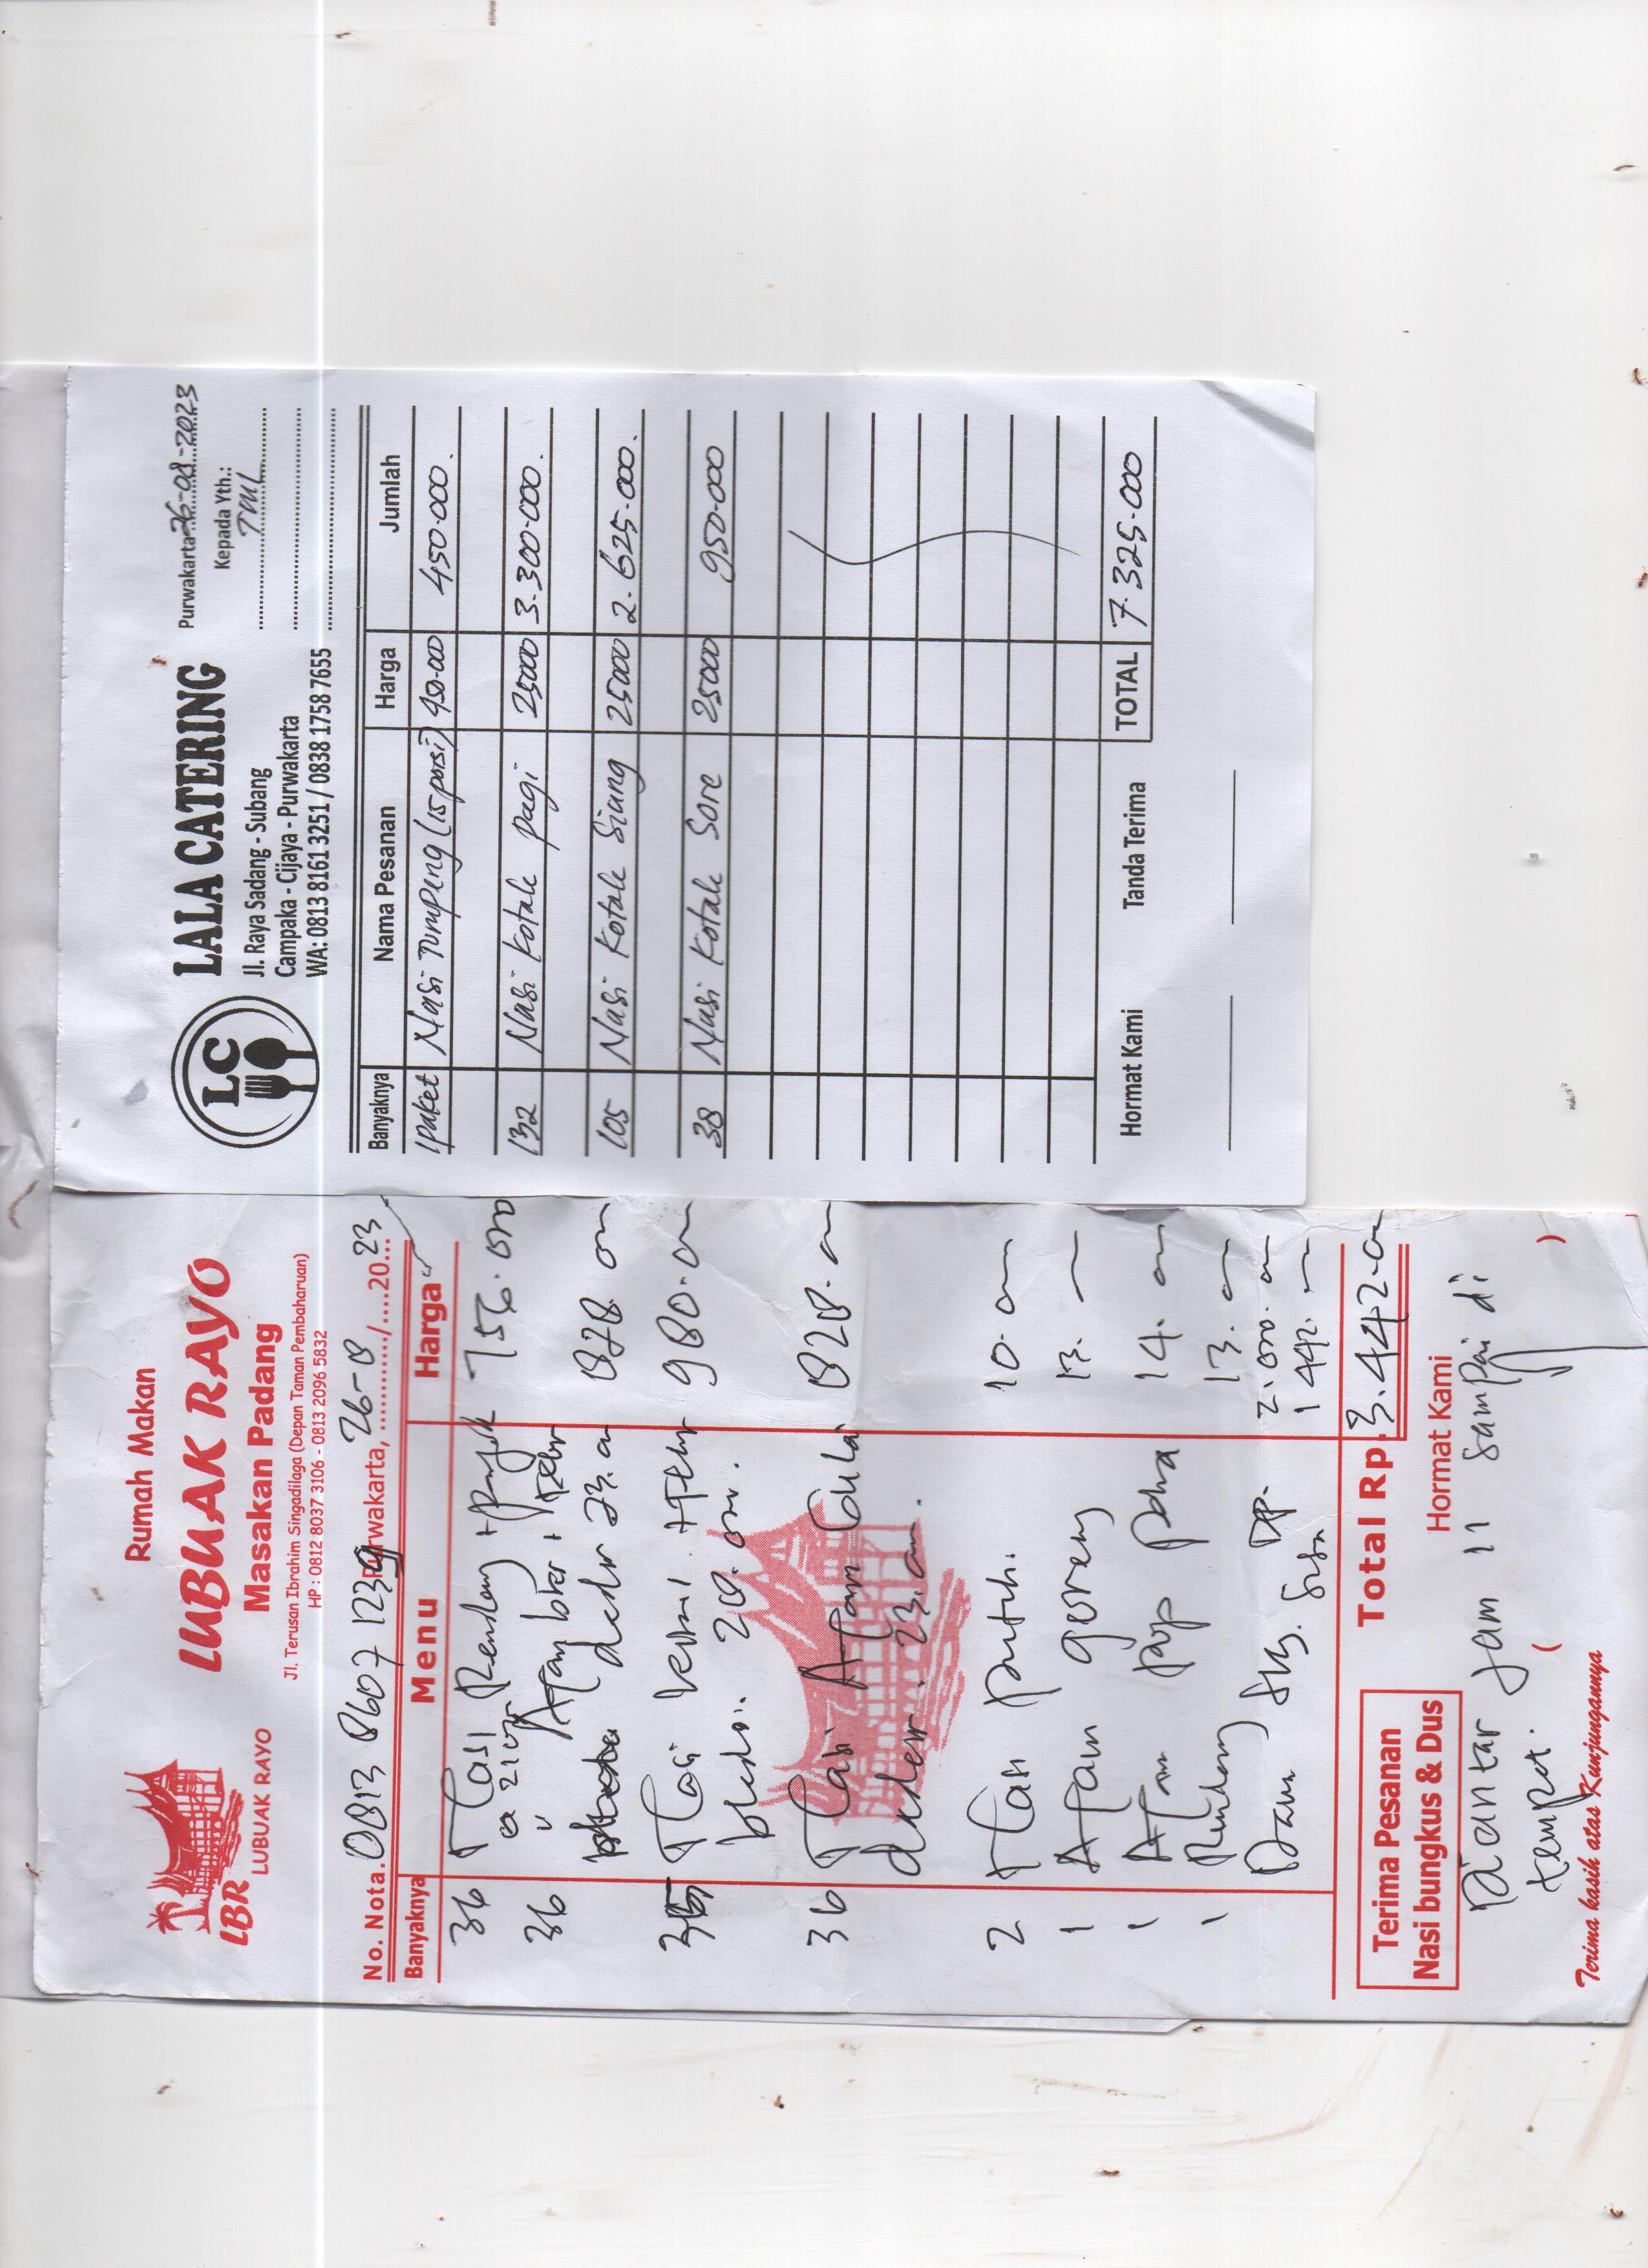 Rumah Makan
LUBUAK RAYO
Masakan Padang
Jl. Terusan Ibrahim Singadilaga (Depan Taman Pembaharuan)
HP : 0812 8037 3106 - 0813 2096 5832
LBR
LUBUAK RAYO
No. Nota. 0813 8607 1239 Purwakarta, 26-8 20 23
Banyaknya Menu Harga
36 Nasi Rendang + 756.000
@ 21.000
36 " Ayam + Telur 828
23.
35 Nasi + Telur 980.
28.
36 Nasi Ayam Gulai 828.
23.
2 Nasi putih. 10.
1 Ayam goreng 13.
1 Ayam pop paha 14.
1 Rendang 13.
DP. 2.000.
Sisa 1 442.
Total Rp. 3.442.
Terima Pesanan
Nasi bungkus & Dus
Hormat Kami
Diantar jam 11 sampai di
tempat.
( )
Terima kasih atas Kunjungannya
LC
LALA CATERING
Jl. Raya Sadang - Subang
Campaka - Cijaya - Purwakarta
WA: 0813 8161 3251 / 0838 1758 7655
Purwakarta 26-08-2023
Kepada Yth.:
TML
Banyaknya Nama Pesanan Harga Jumlah
1 paket Nasi Tumpeng (15 porsi) 450.00 450.000.
132 Nasi Kotak pagi 25000 3.300.000.
105 Nasi Kotak Siang 25000 2.625.000.
38 Nasi Kotak Sore 25000 950.000
TOTAL 7.325.000
Hormat Kami Tanda Terima